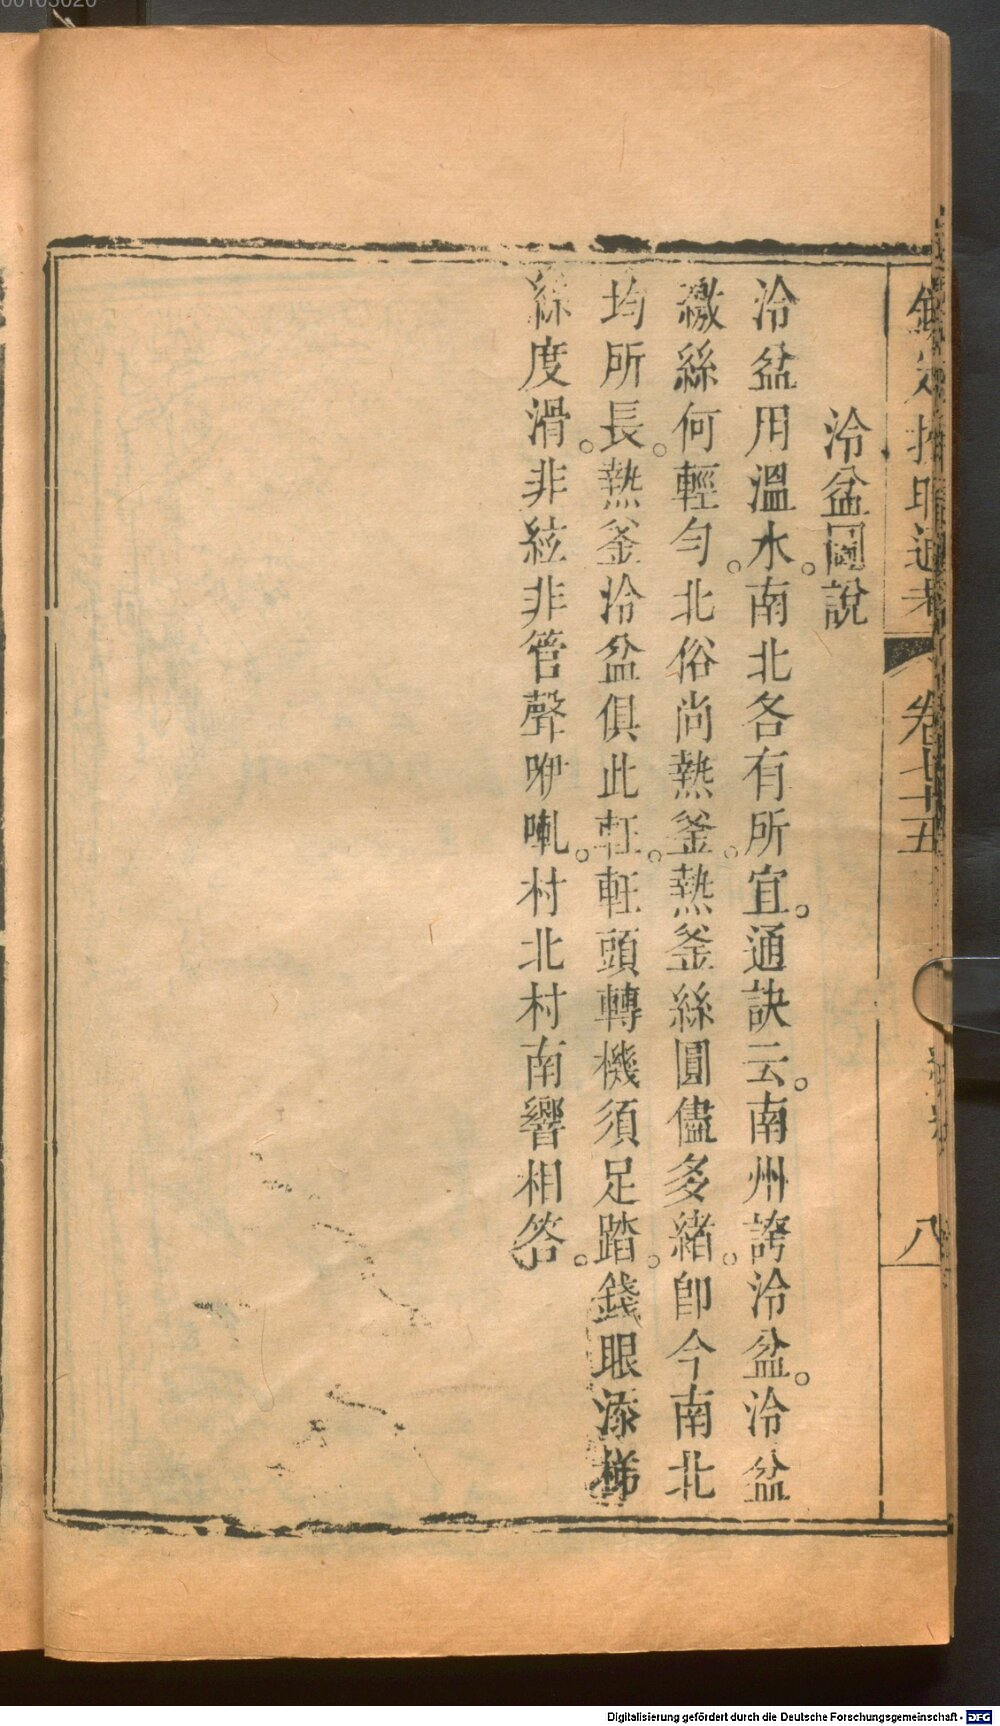 欽定授時通考 卷七十五 八
冷盆圖說
冷盆用溫水。南北各有所宜。通訣云。南州誇冷盆。冷盆
繳絲何輕勻。北俗尚熱釜。熱釜絲圓儘多緒。卽今南北
均所長。熱釜冷盆俱此軠。軠頭轉機須足踏。錢眼添梯
絲度滑。非絃非管聲咿軋。村北村南響相答。
Digitalisierung gefördert durch die Deutsche Forschungsgemeinschaft - DFG